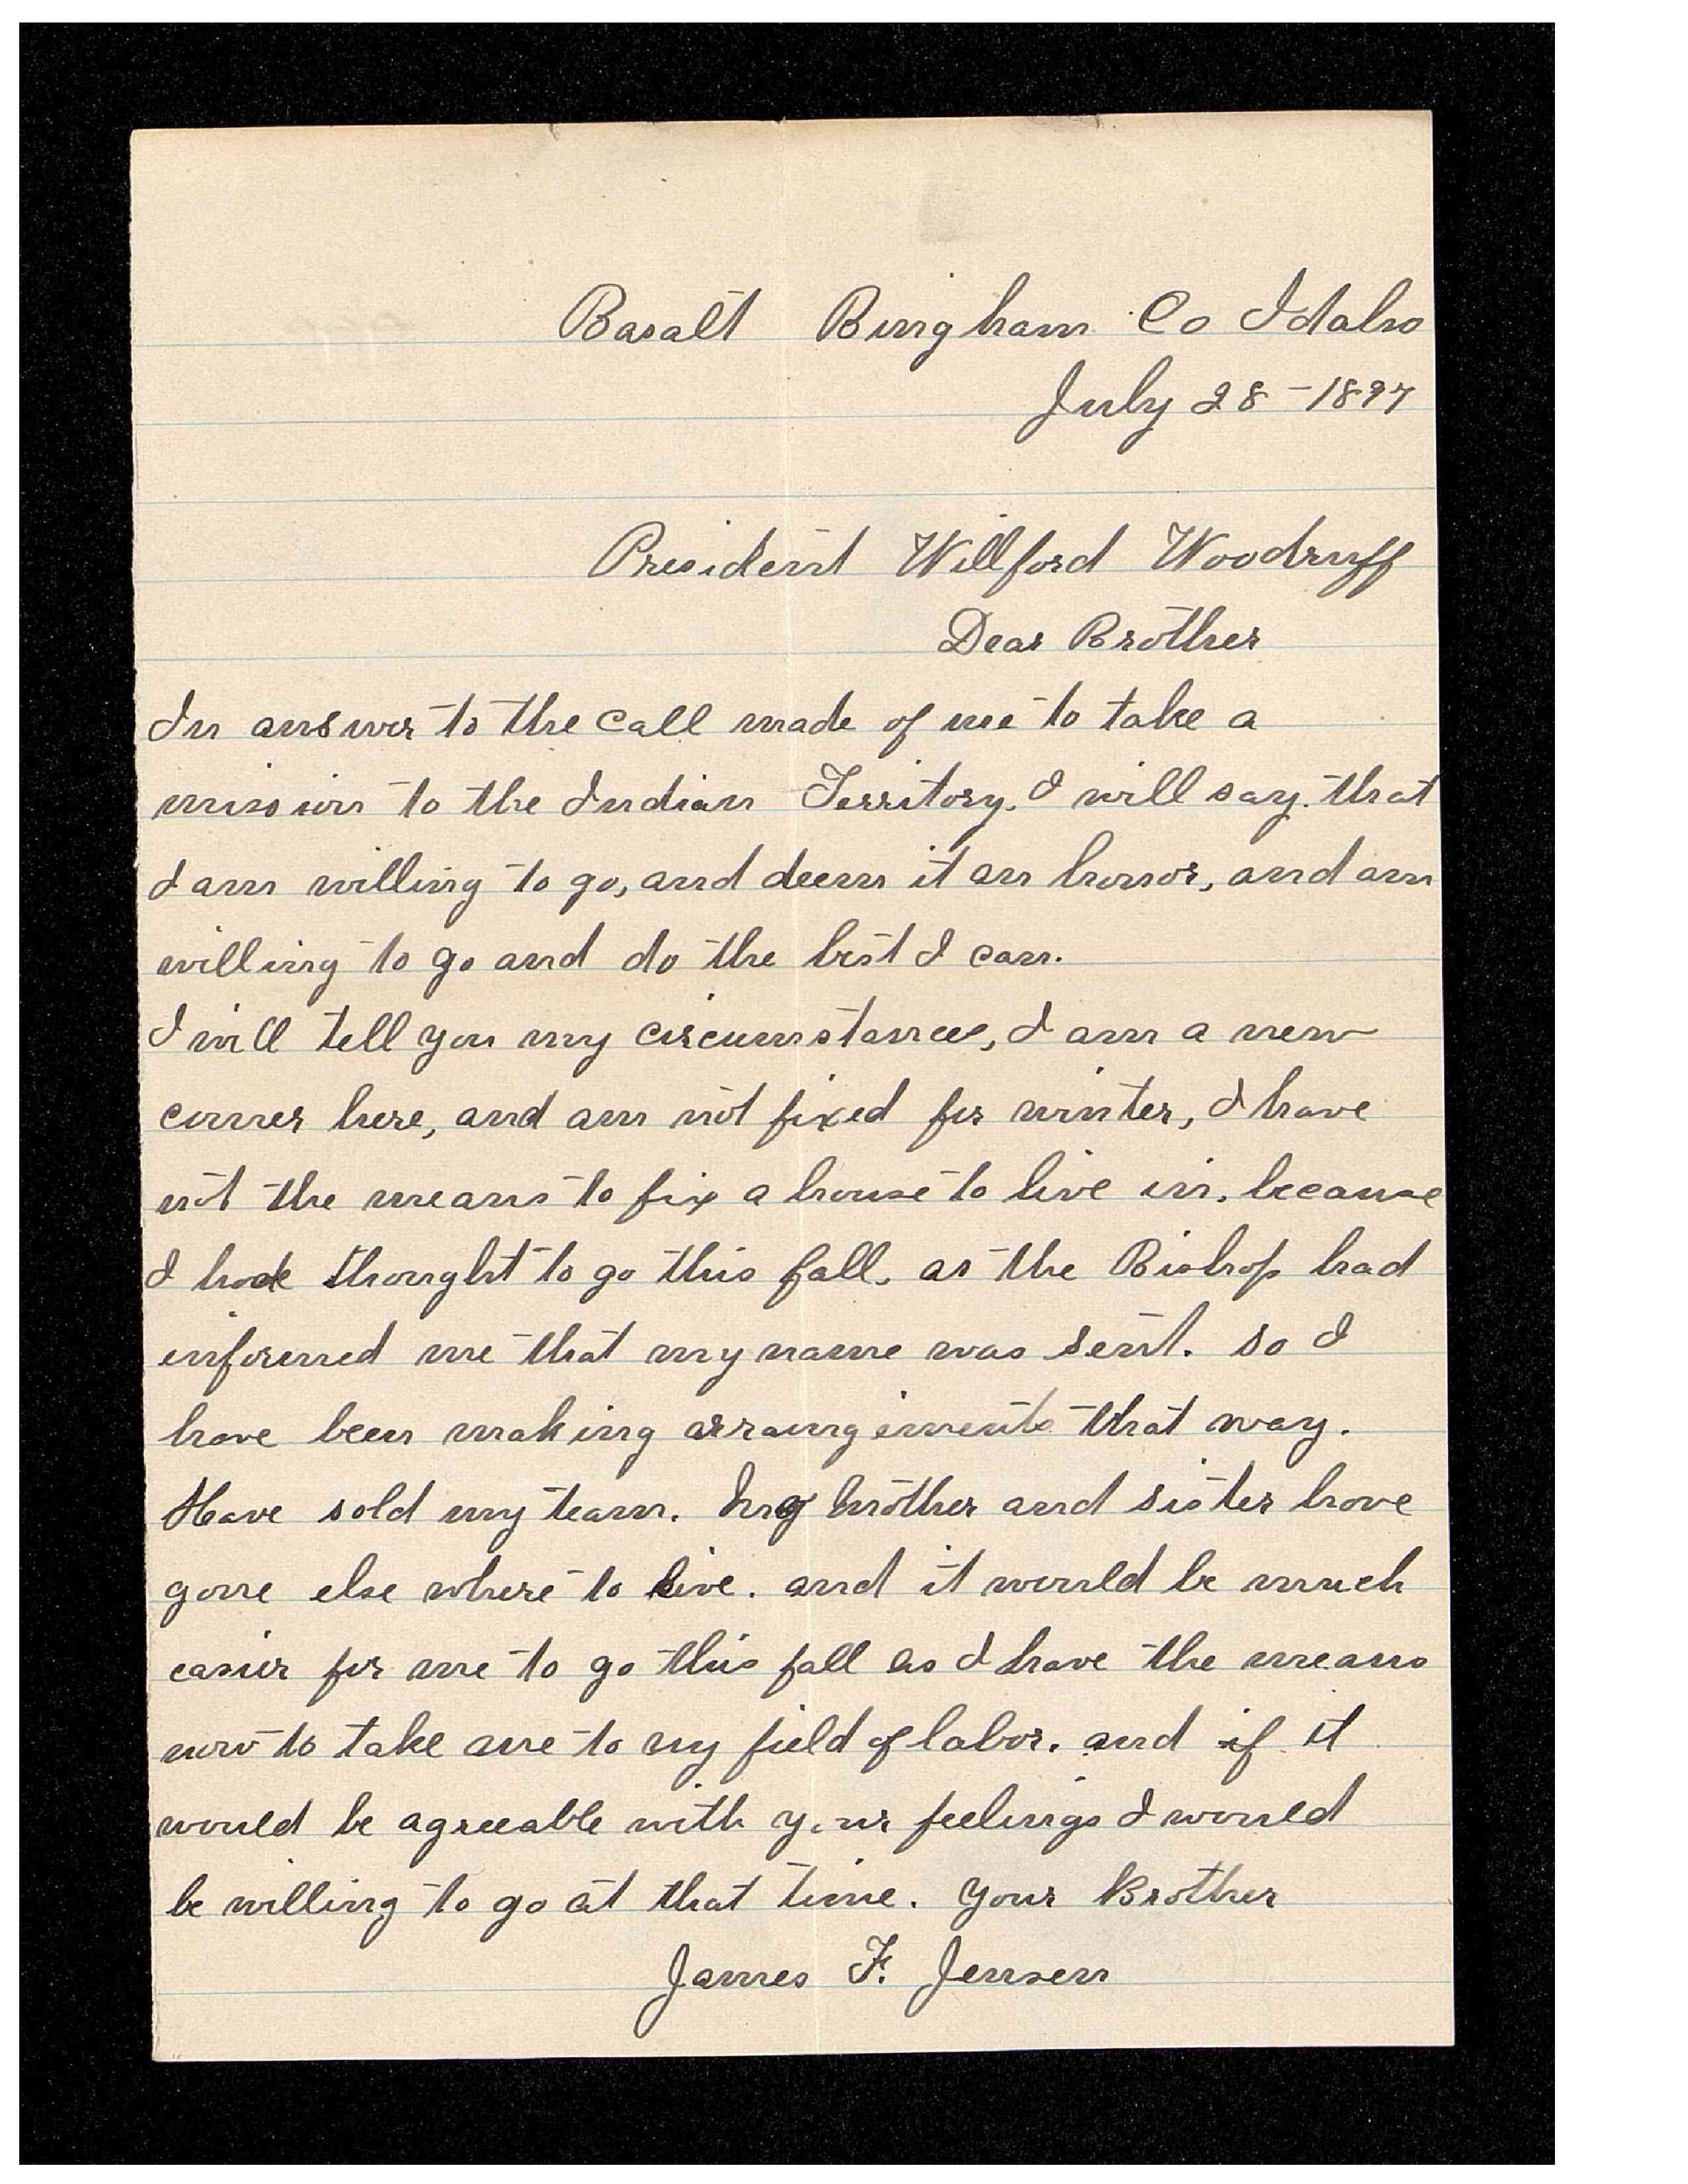 Basalt Bingham Co Idaho
July 28-1897
President Willford Woodruff
Dear Brother
In answer to the call made of me to take a
mission to the Indian Territory. I will say. that
I am willing to go, and deem it an honor, and am
willing to go and do the best I can.
I will tell you my circumstances, I am a new
comer here, and am not fixed for winter, I have
not the means to fix a house to live in. because
I had thought to go this fall. as the Bishop had
informed me that my name was sent. so I
have been making arrangements that way.
Have sold my team. My Mother and sister have
gone else where to live. and it would be much
easier for me to go this fall as I have the means
now to take me to my field of labor. and if it
would be agreeable with your feelings I would
be willing to go at that time. Your Brother
James F. Jensen